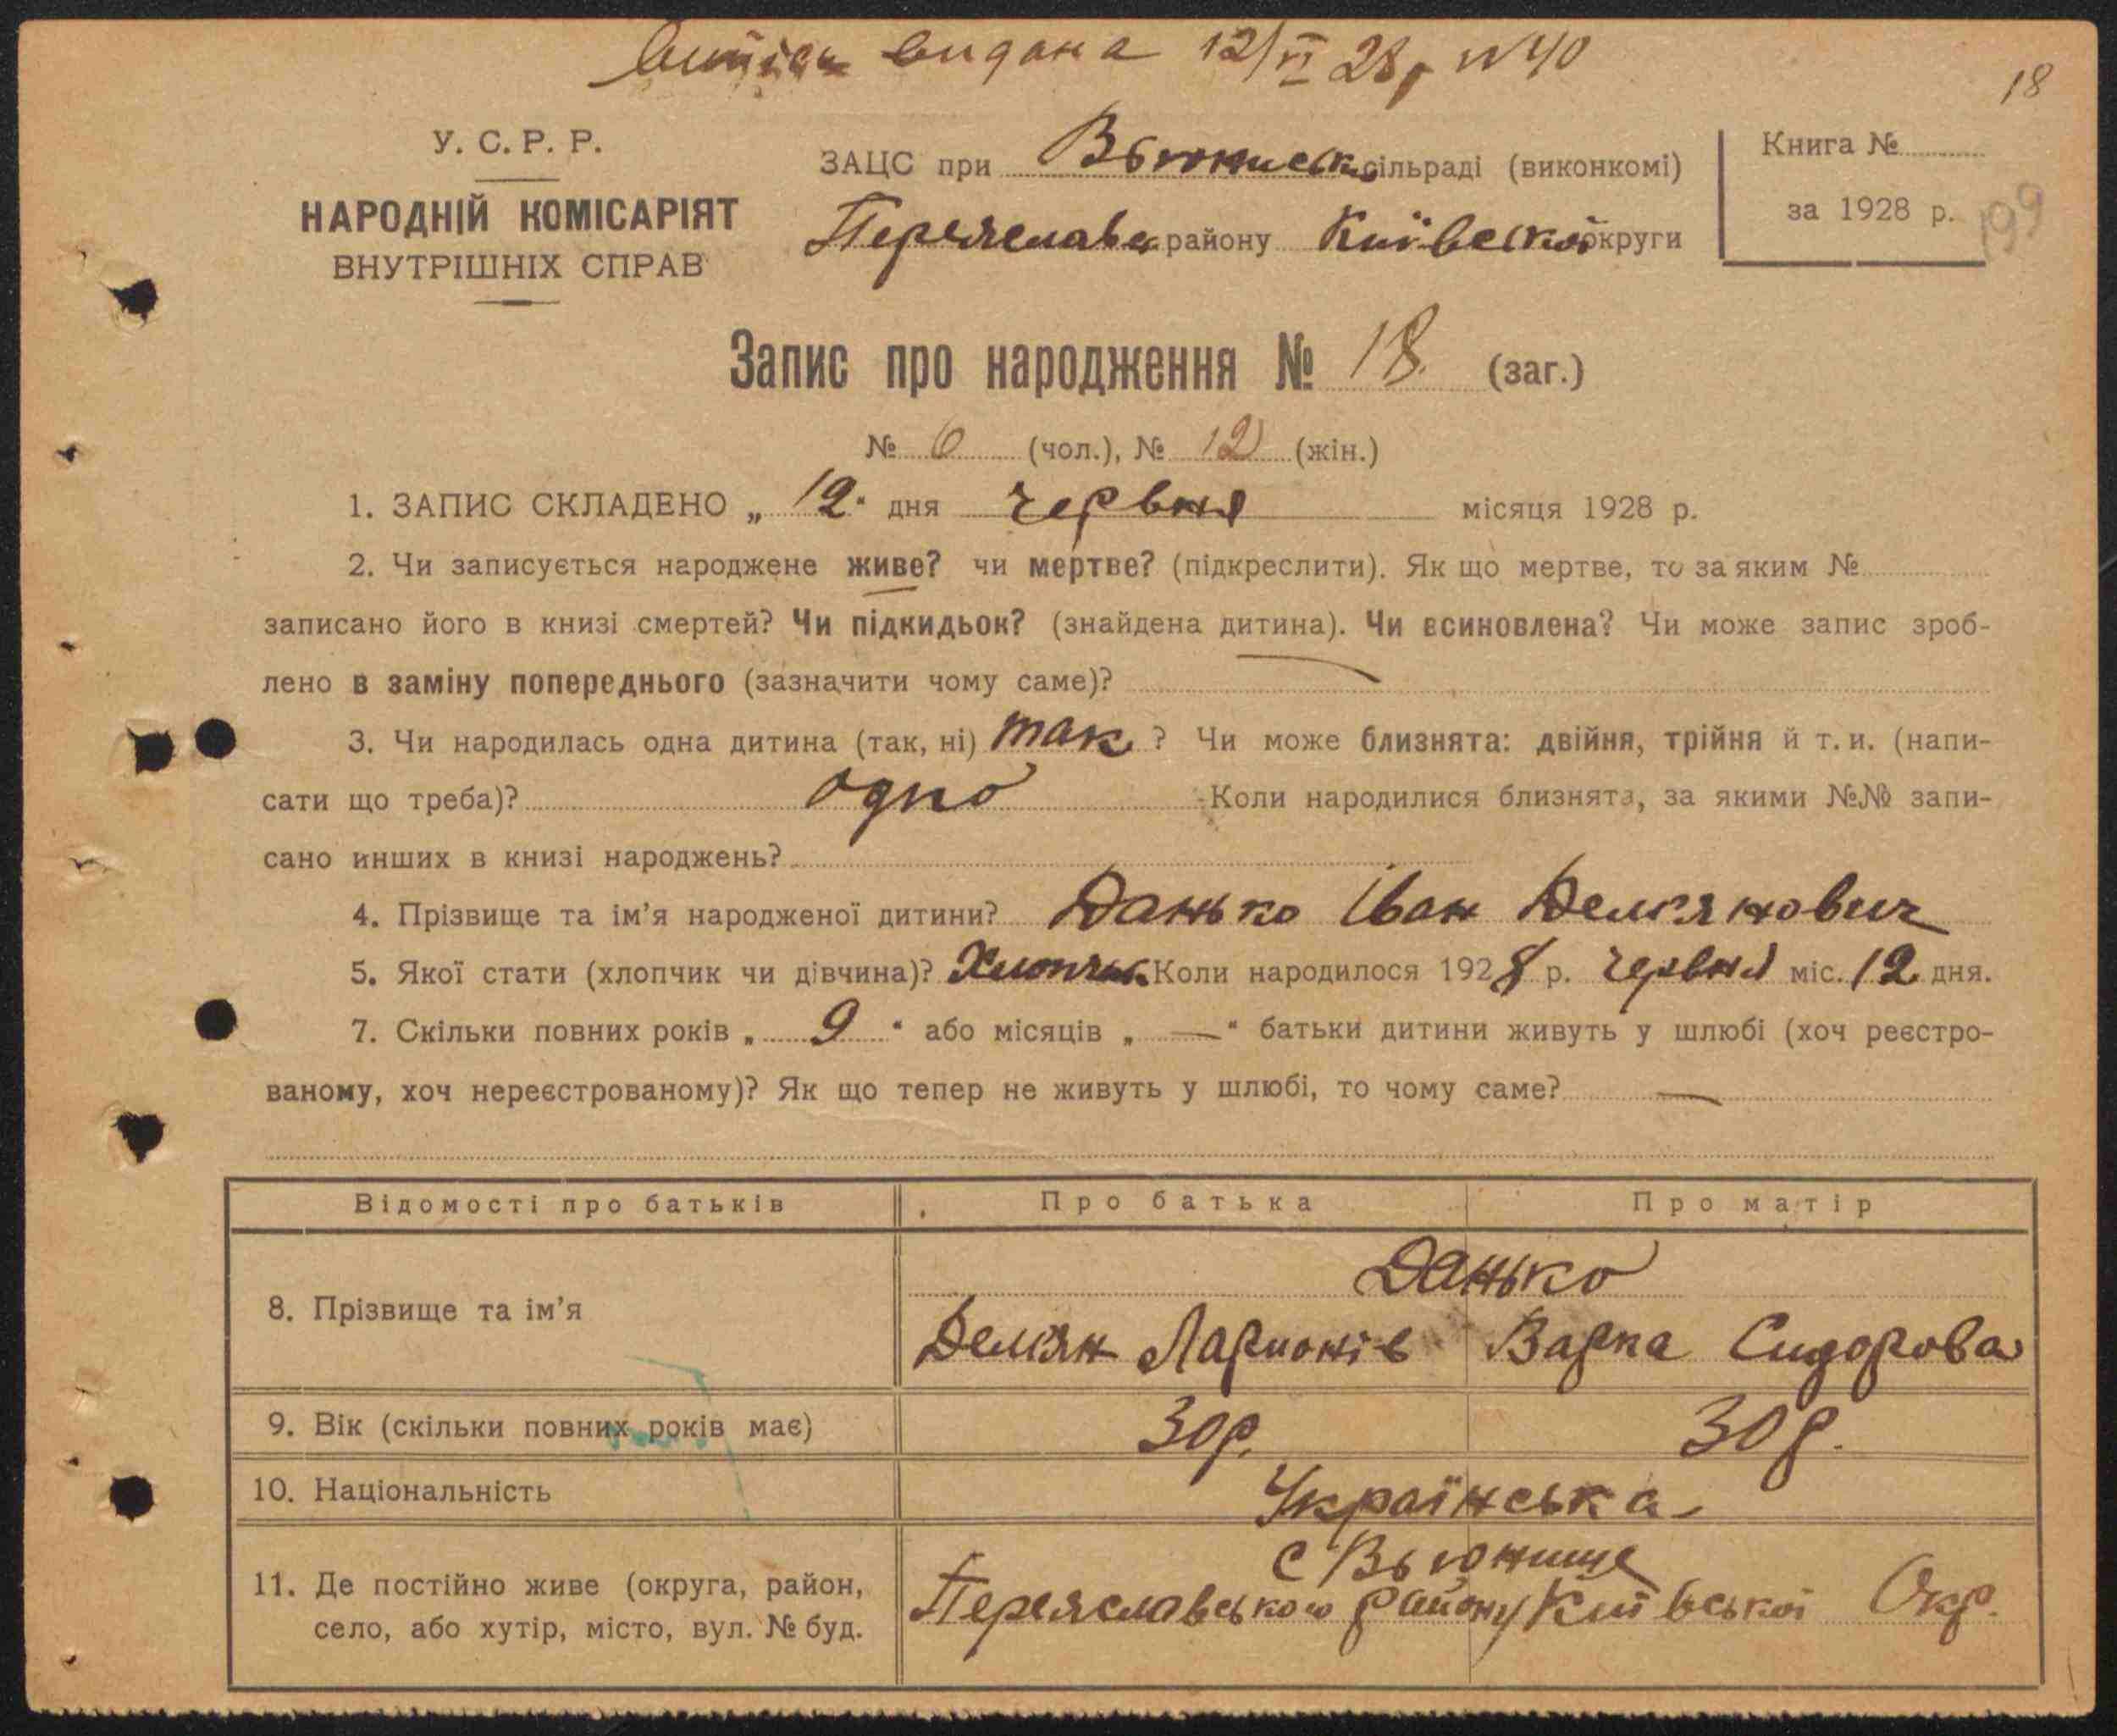 видана 12/VI 28 р N 40
18
У. С. Р. Р.
НАРОДНІЙ КОМІСАРІЯТ
ВНУТРІШНІХ СПРАВ
ЗАЦС при Вьюниськ сільраді (виконкомі)
Переяславськ району Київської округи
Книга №
за 1928 р.
199
Запис про народження № 18 (заг.)
№ 6 (чол.), № 12 (жін.)
1. ЗАПИС СКЛАДЕНО „ 12 " дня червня місяця 1928 р.
2. Чи записується народжене живе? чи мертве? (підкреслити). Як що мертве, то за яким №
записано його в книзі смертей? Чи підкидьок? (знайдена дитина). Чи всиновлена? Чи може запис зроб-
лено в заміну попереднього (зазначити чому саме)? —
3. Чи народилась одна дитина (так, ні) так ? Чи може близнята: двійня, трійня й т. и. (напи-
сати що треба)? одно Коли народилися близнята, за якими №№ запи-
сано инших в книзі народжень?
4. Прізвище та ім'я народженої дитини? Данько Іван Демянович
5. Якої стати (хлопчик чи дівчина)? Хлопчик Коли народилося 1928 р. червня міс. 12 дня.
7. Скільки повних років „ 9 " або місяців „ — " батьки дитини живуть у шлюбі (хоч реєстро-
ваному, хоч нереєстрованому)? Як що тепер не живуть у шлюбі, то чому саме? —
Відомості про батьків Про батька Про матір
Данько
8. Прізвище та ім'я Демян Ларионів Варка Сидорова
9. Вік (скільки повних років має) 30 р. 30 р.
10. Національність Українська
с Вьюнище
11. Де постійно живе (округа, район, Переяславського району Київської Окр.
село, або хутір, місто, вул. № буд.